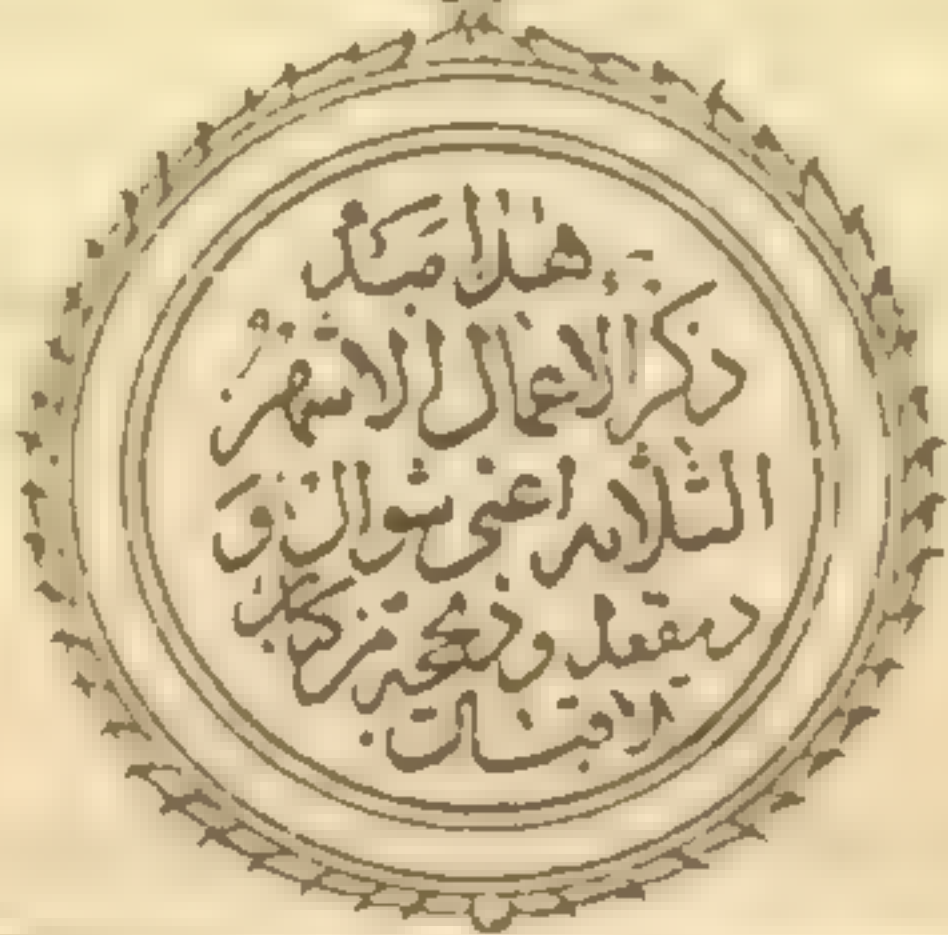 هذا مبدا
ذكر الاعمال الاشهر
الثلاثه اعنى شوال و
ذيقعده وذيحجه من كتاب
الاقبال